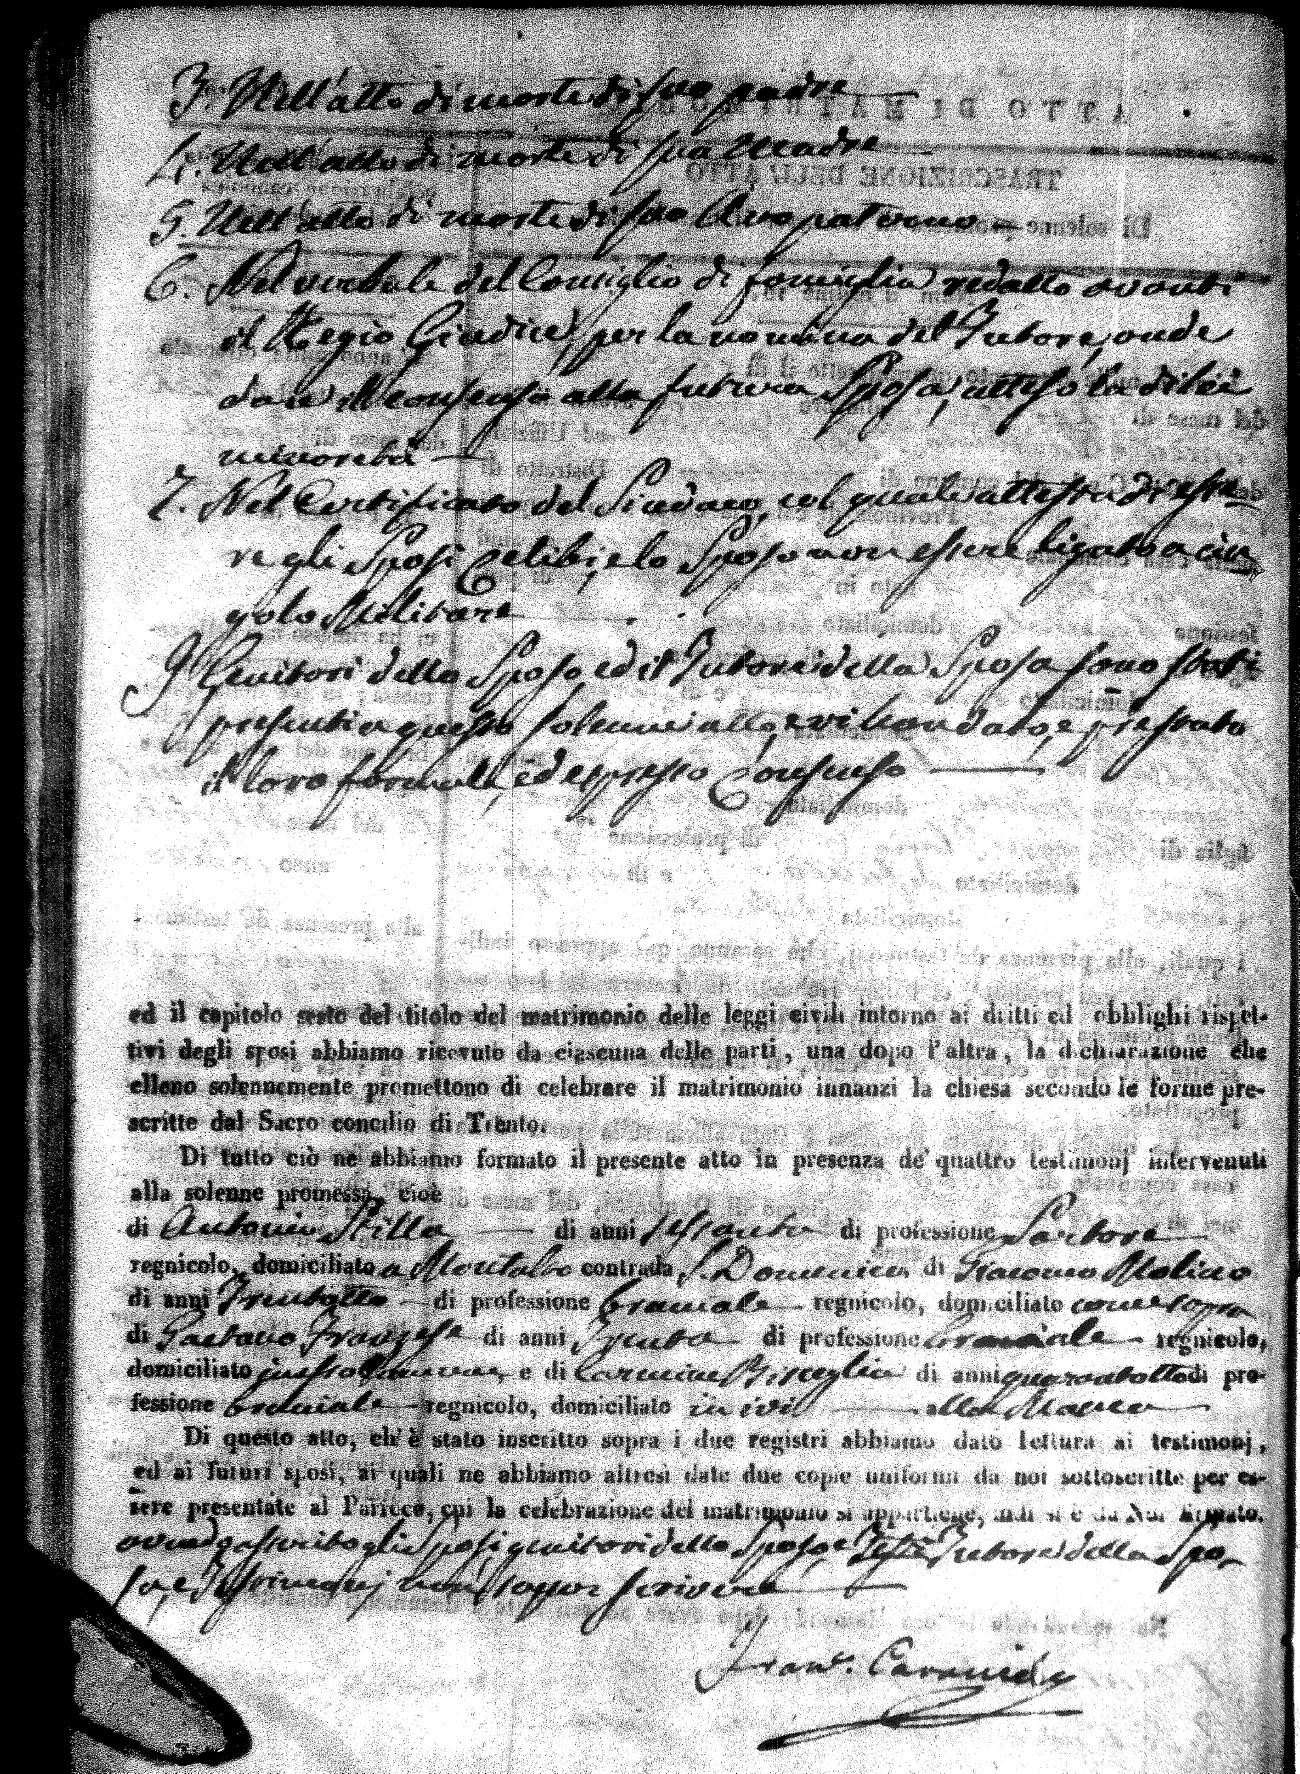 3. Nell'atto di morte di suo padre
4. Nell'atto di morte di sua Madre
5. Nell'atto di morte di suo Avo paterno
6. Nel verbale del Consiglio di famiglia redatto avanti
il Regio Giudice, per la nomina del Tutore, onde
dare il consenso alla futura Sposa, atteso la di lei
minorità
7. Nel Certificato del Sindaco, col quale attesta di esse-
re gli Sposi Celibi, e lo Sposo non essere ligato a cin
golo Militare
Genitori dello Sposo ed il Tutore della Sposa sono stati
presenti a questo solenne atto, e vi han dato, e prestato
il loro formale, ed espresso Consenso
ed il capitolo sesto del titolo del matrimonio delle leggi civili intorno ai dritti ed obblighi rispet-
tivi degli sposi abbiamo ricevuto da ciascuna delle parti, una dopo l'altra, la dichiarazione che
elleno solennemente promettono di celebrare il matrimonio innanzi la chiesa secondo le forme pre-
scritte dal Sacro concilio di Trento.
Di tutto ciò ne abbiamo formato il presente atto in presenza de' quattro testimonj intervenuti
alla solenne promessa, cioè
di Antonio Stilla di anni sessanta di professione Sartore
regnicolo, domiciliato a Montalbo contrada S. Domenico di Giacomo Molino
di anni Trentotto di professione Bracciale regnicolo, domiciliato come sopra
di Gaetano Franzese di anni Trenta di professione Bracciale regnicolo,
domiciliato e di Carmine Bisceglia di anni quarantotto di pro-
fessione Bracciale regnicolo, domiciliato ivi alla
Di questo atto, ch'è stato inscritto sopra i due registri abbiamo dato lettura ai testimonj,
ed ai futuri sposi, ai quali ne abbiamo altresì date due copie uniformi da noi sottoscritte per es-
sere presentate al Parroco, cui la celebrazione del matrimonio si appartiene, indi si è da Noi firmato.
avendo asserito gli Sposi, genitori dello Sposo, Tutore della Spo-
sa, e Testimonj non saper scrivere